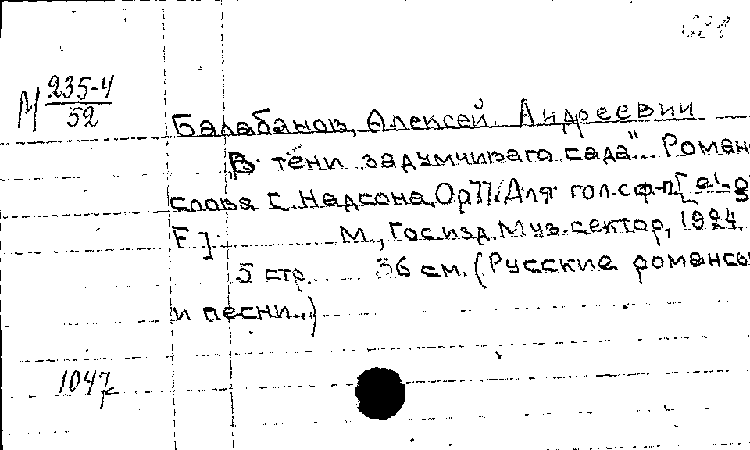 М 235-4
52
Балабанов, Алексей Андреевич
"В тени задумчивого сада"... Роман
слова С. Надсона, Ор. Для гол. с ф-п. [
F].                М., Госизд. Муз. сектор, 1924
5 стр.    36 см. (Русские романсы
и песни...)
1047